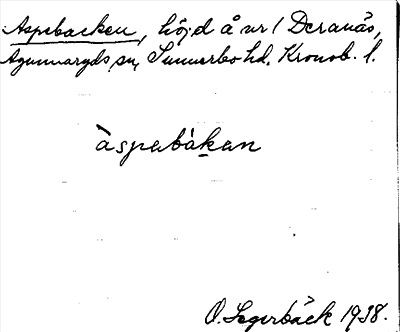 Aspebacken, höjd å nr 1 Deranäs,
Agunnaryds sn, Sunnerbo hd. Kronob. l.
àspebàkan
O. Segerbäck 1938.